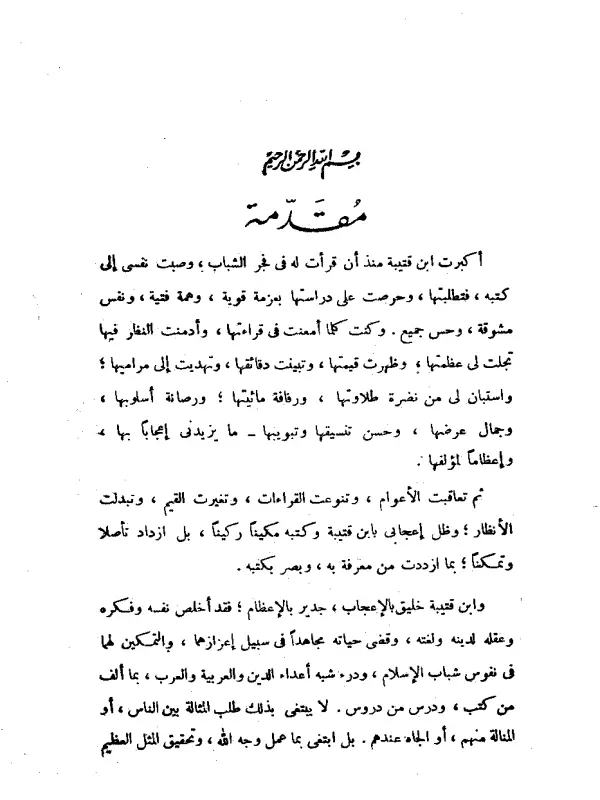 بسم الله الرحمن الرحيم
مُقَدّمة
أكبرت ابن قتيبة منذ أن قرأت له فى فجر الشباب ، وصبت نفسى إلى
كتبه ، فتطلبتها ، وحرصت على دراستها بعزمة قوية ، وهمة فتية ، ونفس
مشوقة ، وحس جميع . وكنت كلما أمعنت فى قراءتها ، وأدمنت النظار فيها
تجلت لى عظمتها ؛ وظهرت قيمتها ، وتبينت دقائقها ، وتهديت إلى مراميها ؛
واستبان لى من نضرة طلاوتها ، ورفافة مائيتها ؛ ورصانة أسلوبها ،
وجمال عرضها ، وحسن تنسيقها وتبويبها ــ ما يزيدنى إعجاباً بها ،
وإعظاماً لمؤلفها .
ثم تعاقبت الأعوام ، وتنوعت القراءات ، وتغيرت القيم ، وتبدلت
الأنظار ؛ وظل إعجابى بابن قتيبة وكتبه مكيناً ركيناً ، بل ازداد تأصلا
وتمكناً ؛ بما ازددت من معرفة به ، وبصر بكتبه .
وابن قتيبة خليق بالإعجاب ، جدير بالإعظام ؛ فقد أخلص نفسه وفكره
وعقله لدينه ولغته ، وقضى حياته مجاهداً فى سبيل إعزازهما ، والتمكين لهما
فى نفوس شباب الإسلام ، ودرء شبه أعداء الدين والعربية والعرب ، بما ألف
من كتب ، ودرس من دروس . لا يبتغى بذلك طلب المثالة بين الناس ، أو
المنالة منهم ، أو الجاه عندهم . بل ابتغى بما عمل وجه الله ، وتحقيق المثل العظيم